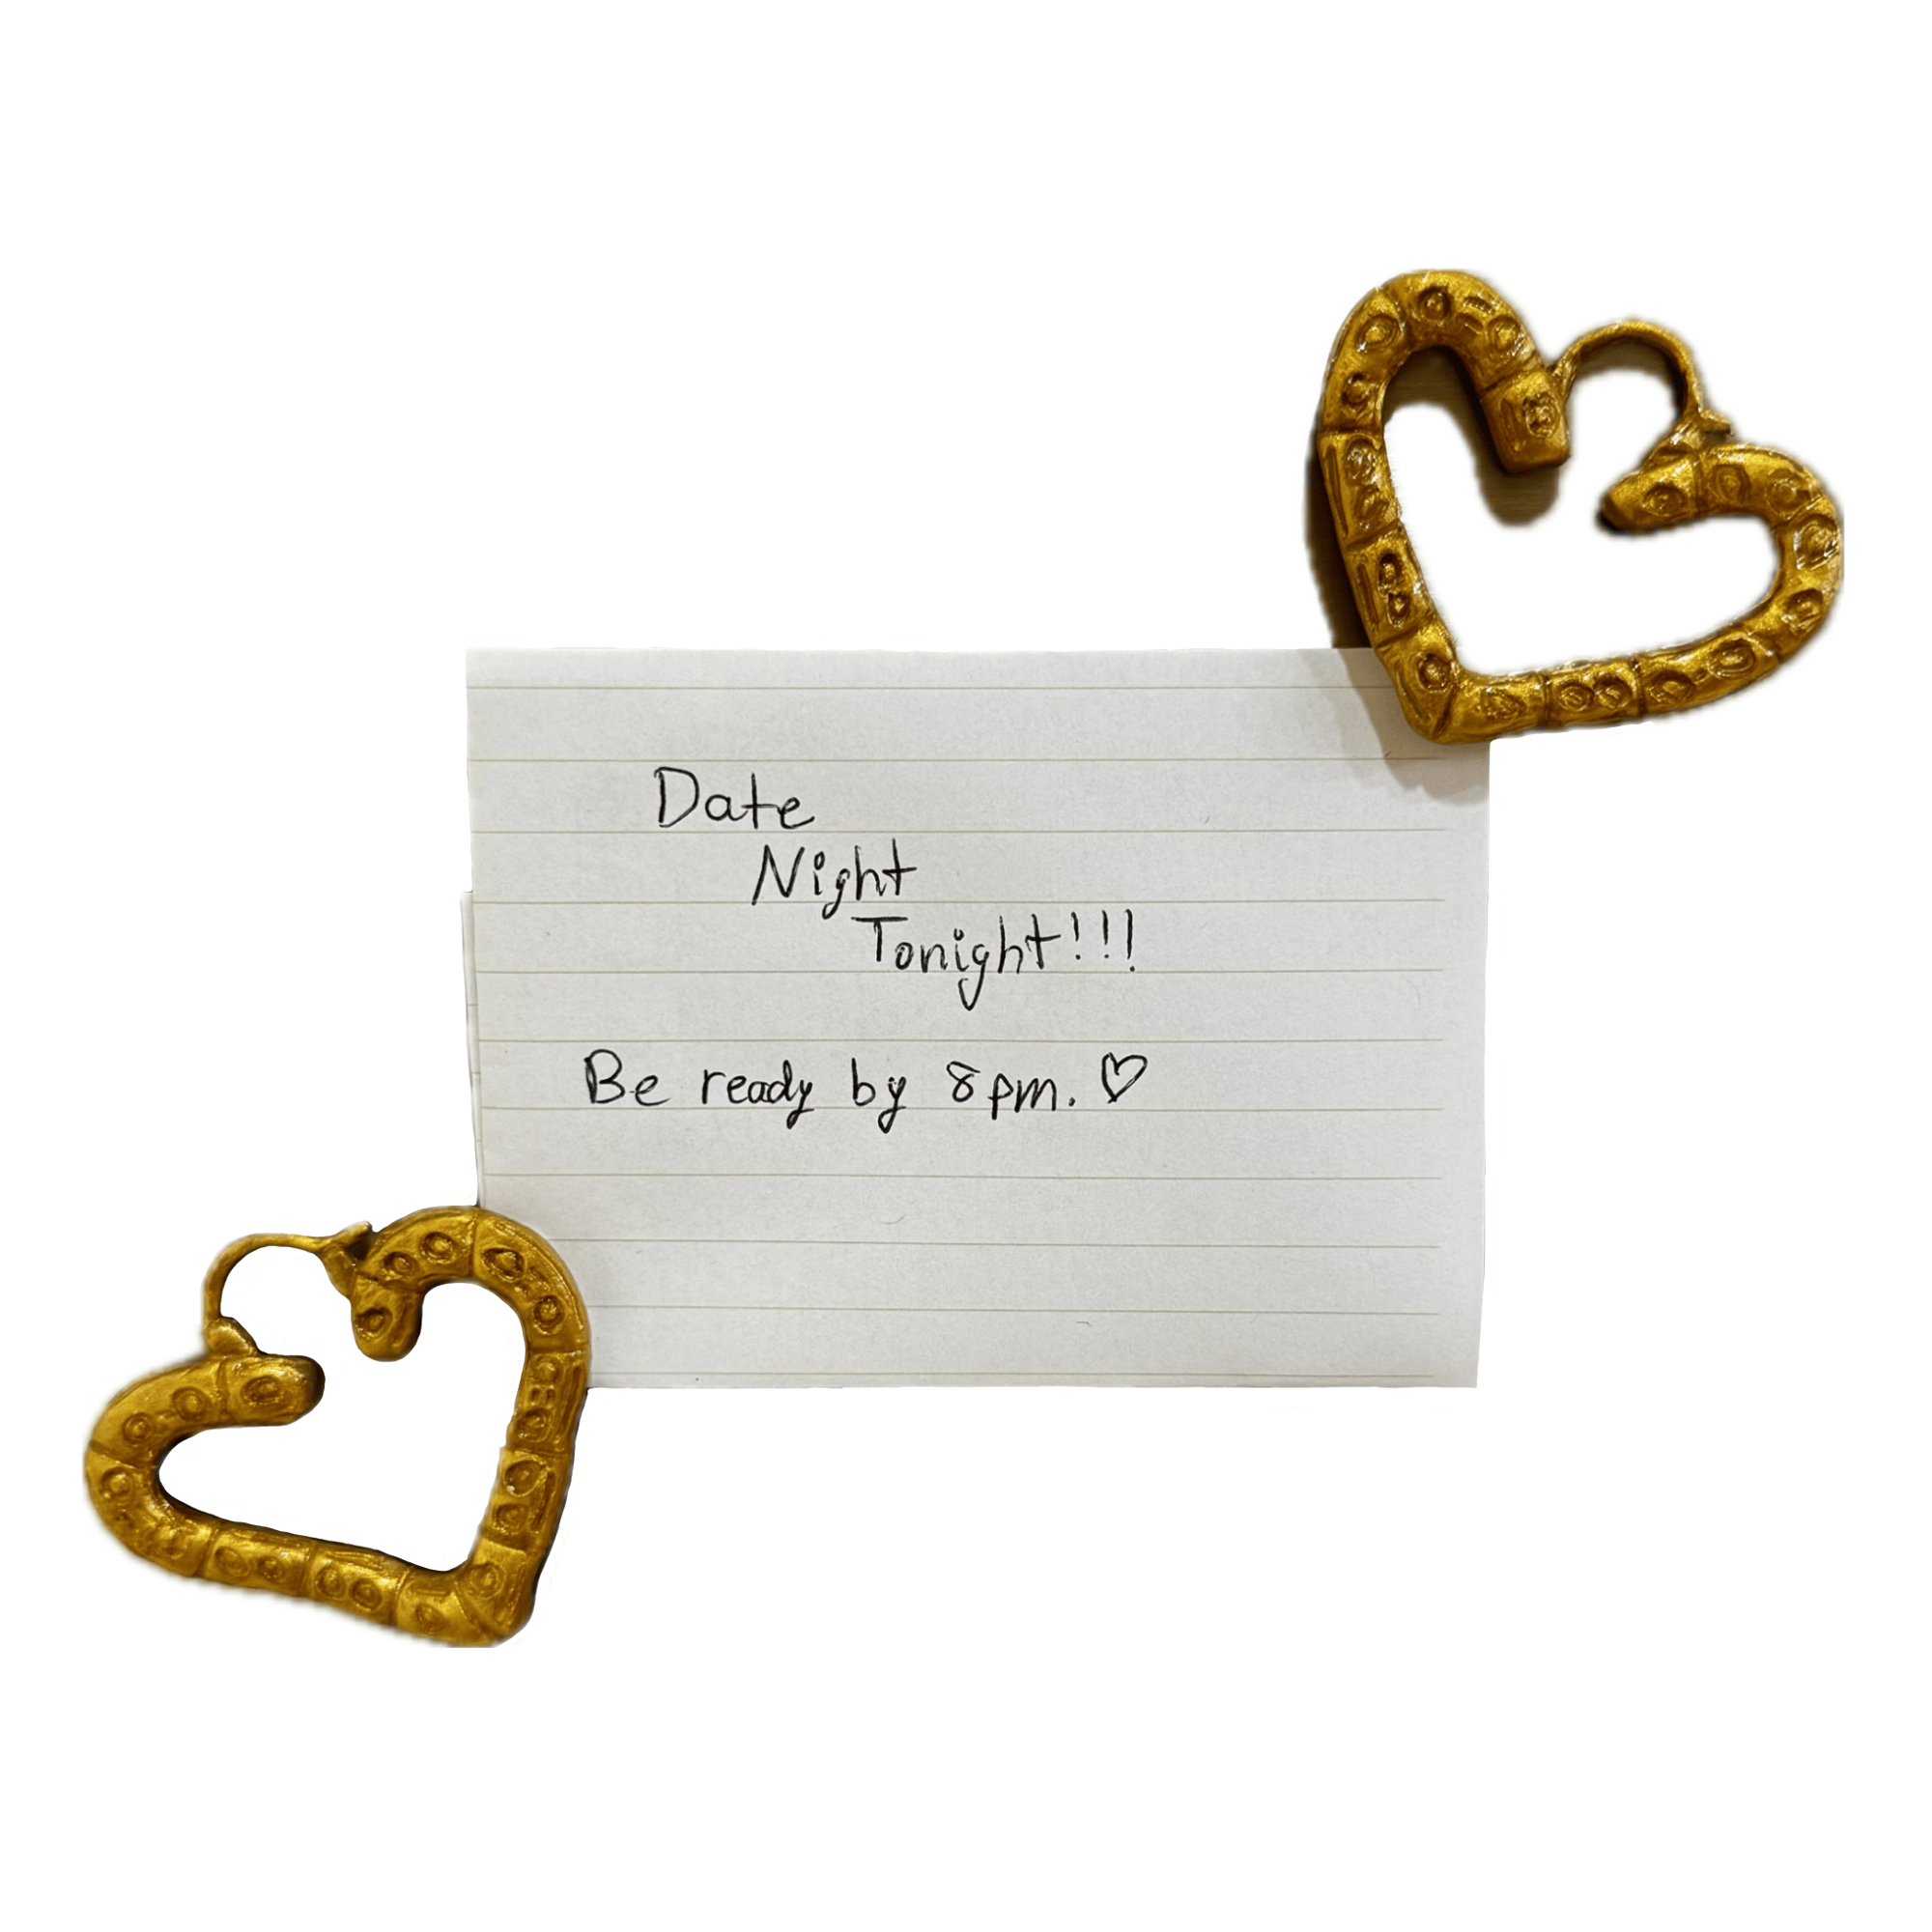 Date
Night
Tonight!!!
Be ready by 8pm. ♡